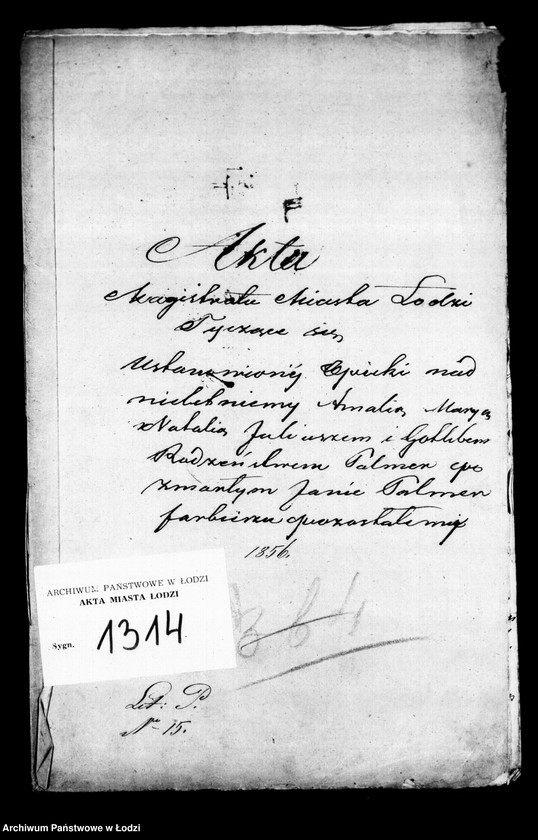 F
Akta
Magistratu Miasta Łodzi
Tyczące się
Ustanowionéj Opieki nad
nieletniemy Amalią Maryą
Natalią Juliuszem i Gotlibem
Rodzeństwem Palmer po
zmarłym Janie Palmer
farbierzu pozostałemi
1856.
ARCHIWUM PAŃSTWOWE W ŁODZI
AKTA MIASTA ŁODZI
Sygn. 1314
Lit: P.
Nr 15.
Archiwum Państwowe w Łodzi
Archiwum Państwowe w Łodzi